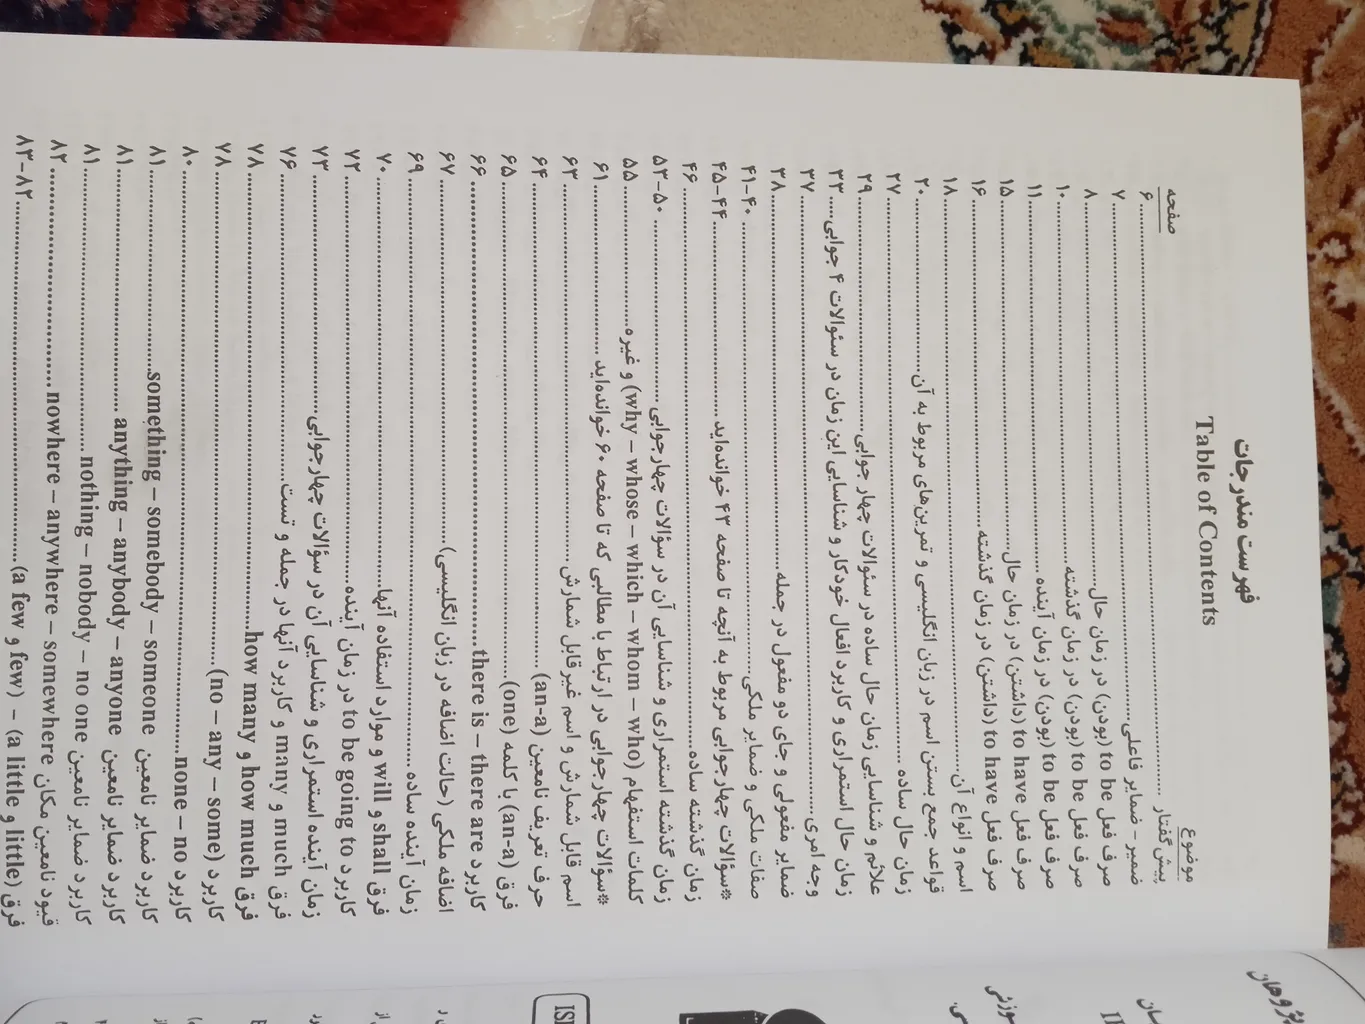 فهرست مندرجات
Table of Contents
موضوع صفحه
پیش‌گفتار ........ ۶
ضمیر – ضمایر فاعلی ........ ۷
صرف فعل to be (بودن) در زمان حال ........ ۸
صرف فعل to be (بودن) در زمان گذشته ........ ۱۰
صرف فعل to be (بودن) در زمان آینده ........ ۱۱
صرف فعل to have (داشتن) در زمان حال ........ ۱۵
صرف فعل to have (داشتن) در زمان گذشته ........ ۱۶
اسم و انواع آن ........ ۱۸
قواعد جمع بستن اسم در زبان انگلیسی و تمرین‌های مربوط به آن ........ ۲۰
زمان حال ساده ........ ۲۷
علائم و شناسایی زمان حال ساده در سئوالات چهار جوابی ........ ۲۹
زمان حال استمراری و کاربرد افعال خودکار و شناسایی این زمان در سئوالات ۴ جوابی .... ۳۳
وجه امری ........ ۳۷
ضمایر مفعولی و جای دو مفعول در جمله ........ ۳۸
صفات ملکی و ضمایر ملکی ........ ۴۰-۴۱
*سؤالات چهارجوابی مربوط به آنچه تا صفحه ۴۳ خوانده‌اید ........ ۴۴-۴۵
زمان گذشته ساده ........ ۴۶
زمان گذشته استمراری و شناسایی آن در سؤالات چهارجوابی ........ ۵۰-۵۳
کلمات استفهام (why – whose – which – whom – who) و غیره ........ ۵۵
*سؤالات چهارجوابی در ارتباط با مطالبی که تا صفحه ۶۰ خوانده‌اید ........ ۶۱
اسم قابل شمارش و اسم غیرقابل شمارش ........ ۶۳
حرف تعریف نامعین (an-a) ........ ۶۴
فرق (an-a) با کلمه (one) ........ ۶۵
کاربرد there is – there are ........ ۶۶
اضافه ملکی (حالت اضافه در زبان انگلیسی) ........ ۶۷
زمان آینده ساده ........ ۶۹
فرق shall و will و موارد استفاده آنها ........ ۷۰
کاربرد to be going to در زمان آینده ........ ۷۲
زمان آینده استمراری و شناسایی آن در سؤالات چهارجوابی ........ ۷۳
فرق much و many و کاربرد آنها در جمله و تست ........ ۷۶
فرق how much و how many ........ ۷۸
کاربرد (no – any – some) ........ ۷۸
کاربرد none – no ........ ۸۰
کاربرد ضمایر نامعین something – somebody – someone ........ ۸۱
کاربرد ضمایر نامعین anything – anybody – anyone ........ ۸۱
کاربرد ضمایر نامعین nothing – nobody – no one ........ ۸۱
قیود نامعین مکان nowhere – anywhere – somewhere ........ ۸۲
فرق (little و a little) – (few و a few) ........ ۸۲-۸۳